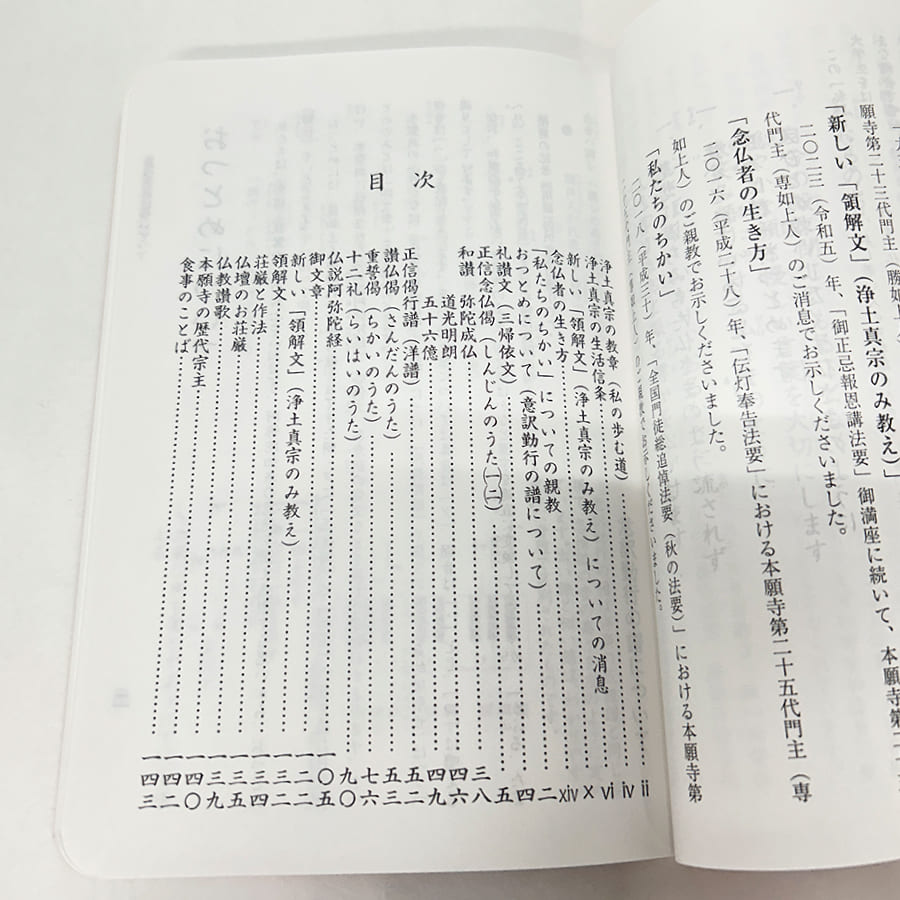 願寺第二十三代門主（勝如上
「新しい「領解文」（浄土真宗のみ教え）」
二〇二三（令和五）年、「御正忌報恩講法要」御満座に続いて、本願寺第二
代門主（専如上人）のご消息でお示しくださいました。
「念仏者の生き方」
二〇一六（平成二十八）年、「伝灯奉告法要」における本願寺第二十五代門主（専
如上人）のご親教でお示しくださいました。
「私たちのちかい」
二〇一八（平成三十）年、「全国門徒総追悼法要（秋の法要）」における本願寺第
目次
浄土真宗の教章（私の歩む道）……ii
浄土真宗の生活信条……iv
新しい「領解文」（浄土真宗のみ教え）についての消息……vi
念仏者の生き方……x
「私たちのちかい」についての親教……xiv
おつとめについて（意訳勤行の譜について）……二
礼讃文（三帰依文）……四
正信念仏偈（しんじんのうた(一)(二)）……五
和讃　弥陀成仏……三八
道光明朗……四六
五十六億……四九
正信偈行譜（洋譜）……五二
讃仏偈（さんだんのうた）……五三
重誓偈（ちかいのうた）……七六
十二礼（らいはいのうた）……九〇
仏説阿弥陀経……一〇五
御文章……一二二
新しい「領解文」（浄土真宗のみ教え）……一三二
領解文……一三四
荘厳と作法……一三五
仏壇のお荘厳……一三九
仏教讃歌……一四〇
本願寺の歴代宗主……一四二
食事のことば……一四三